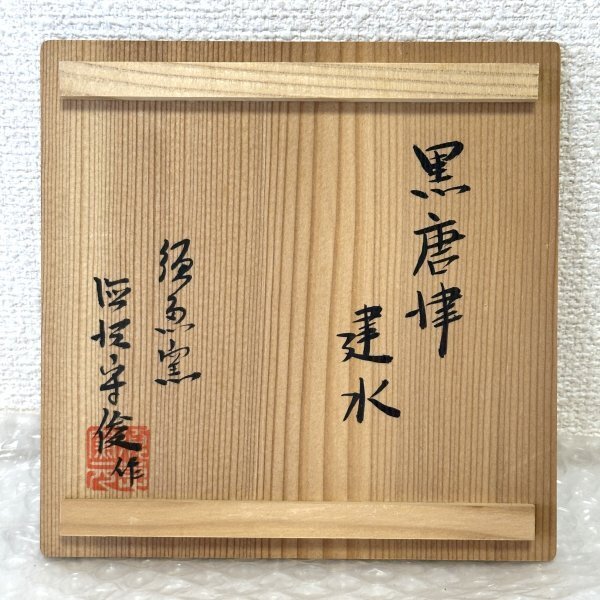 黒唐津
建水
須恵窯
守俊作